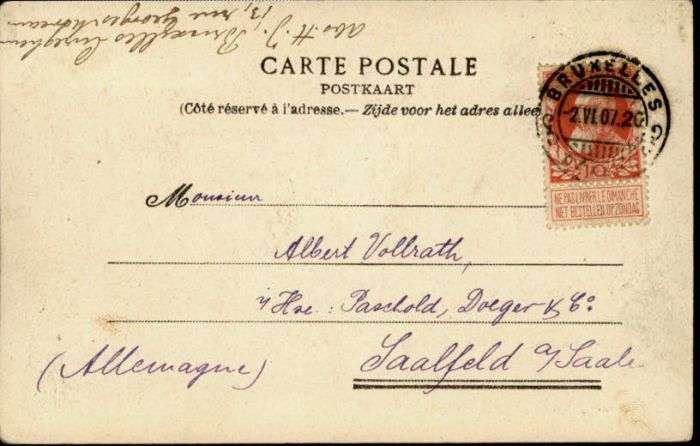 13, rue Georges
Bruxelles
Abs H. J.
CARTE POSTALE
POSTKAART
(Côté réservé à l'adresse.— Zijde voor het adres allee
BRUXELLES
-2.VI.07.20
10
NE PAS LIVRER LE DIMANCHE
NIET BESTELLEN OP ZONDAG
Monsieur
Albert Vollrath,
Hse: Paschold, Doeger & Co
(Allemagne) Saalfeld a/Saale